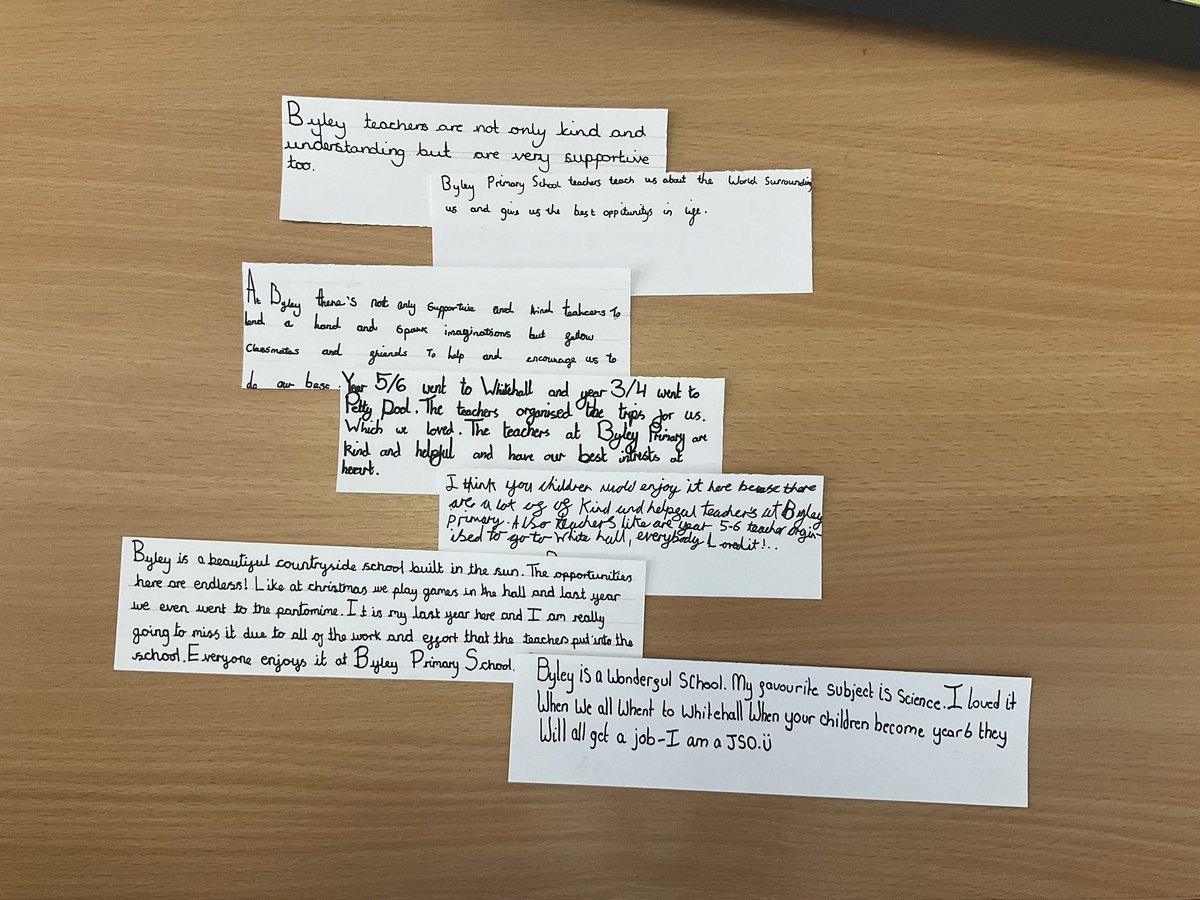 Byley teachers are not only kind and
understanding but are very supportive
too.
Byley Primary School teachers teach us about the World Surrounding
us and give us the best oppitunitys in life.
At Byley there's not only supportive and kind teahcers To
lend a hand and spark imaginations but fellow
classmates and friends To help and encourage us to
do our best.
Year 5/6 went to Whitehall and year 3/4 went to
Petty Pool. The teachers organised the trips for us.
Which we loved. The teachers at Byley Primary are
kind and helpful and have our best intrests at
heart.
I think you children would enjoy it here because there
are a lot of of kind and helpful teachers at Byley
primary. Also teachers like are year 5-6 teacher orgin-
ised to go to White hall, everybody Loved it!..
Byley is a beautiful countryside school built in the sun. The opportunities
here are endless! Like at christmas we play games in the hall and last year
we even went to the pantomine. It is my last year here and I am really
going to miss it due to all of the work and effort that the teachers put into the
school. Everyone enjoys it at Byley Primary School.
Byley is a Wonderful School. My favourite Subject is Science. I loved it
When We all Whent to Whitehall When your children become year 6 they
Will all get a job-I am a JSO.Ü